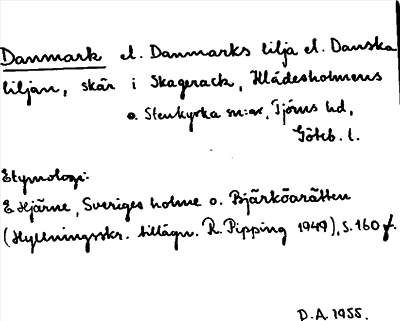 Danmark el. Danmarks lilja el. Danska
liljan, skär i Skagerack, Klädesholmens
o. Stenkyrka sn:ar, Tjörns hd,
Göteb. l.
Etymologi:
E Hjärne, Sveriges holme o. Bjärköarätten
(Hyllningsskr. tillägn. R. Pipping 1949), s. 160 f.
D.A. 1955.